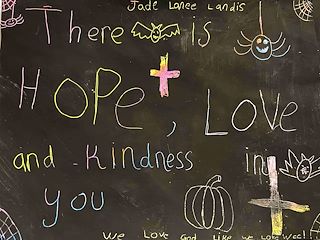 Jade Lanee Landis
There is
HOPe, Love
and Kindness in
you
We Love God Like we Love